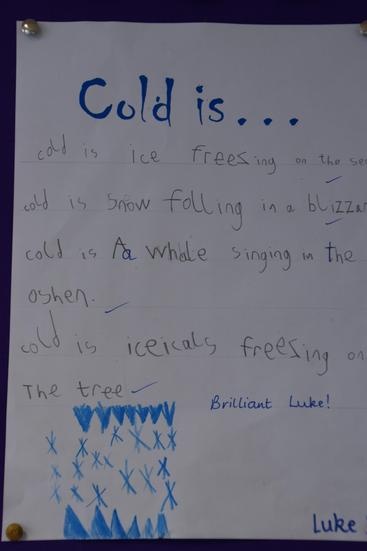 Cold is...
cold is ice freesing on the sea
cold is snow folling in a blizza
cold is Aa whale singing in the
oshen.
cold is iceicals freesing on
The tree
Brilliant Luke!
Luke